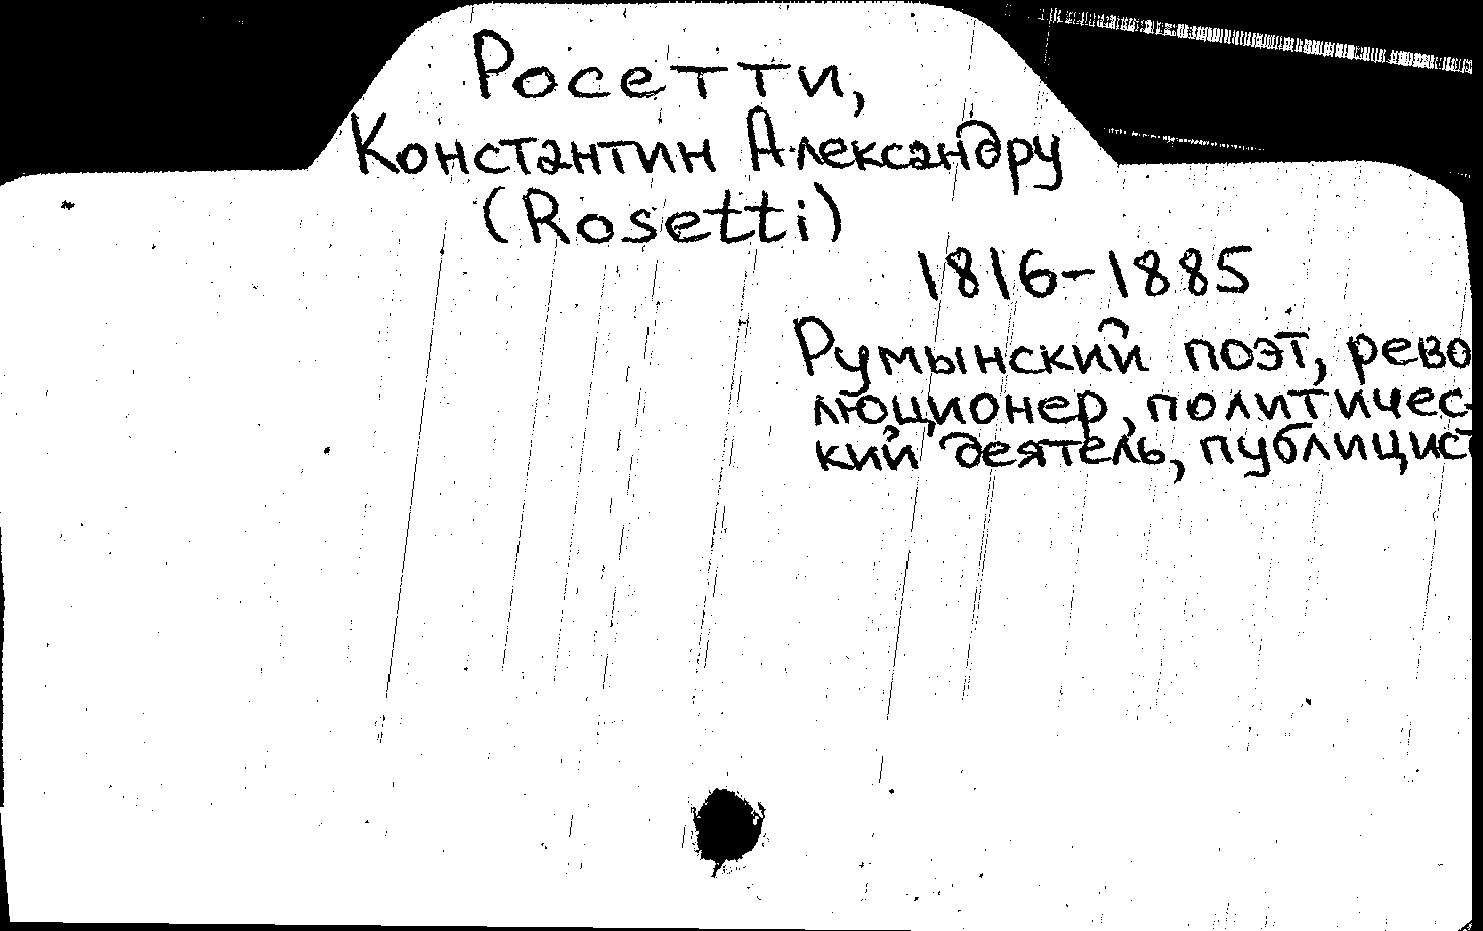 Росетти,
Константин Александру
(Rosetti)
1816-1885
Румынский поэт, рево
люционер, политичес-
кий деятель, публицист